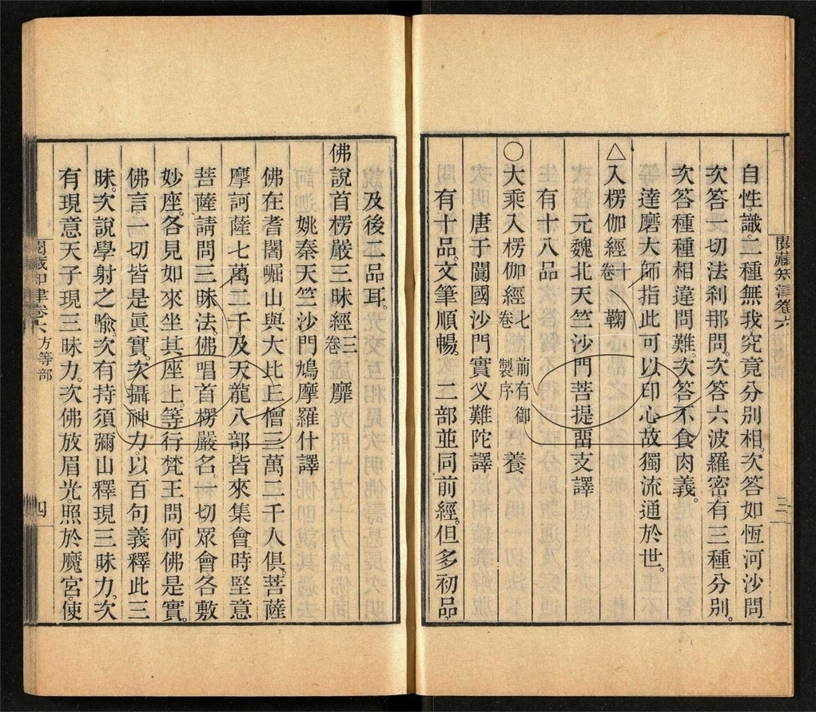 自性識二種無我究竟分別相。次答如恆河沙問
次答一切法剎那問。次答六波羅密有三種分別。
次答種種相違問難。次答不食肉義。
達磨大師指此可以印心故獨流通於世。
△入楞伽經十卷 鞠
元魏北天竺沙門菩提畱支譯
有十八品
○大乘入楞伽經七卷 前有御製序 養
唐于闐國沙門實叉難陀譯
有十品。文筆順暢。二部並同前經。但多初品。
閱藏知津卷六
三
及後二品耳。
佛說首楞嚴三昧經三卷 靡
姚秦天竺沙門鳩摩羅什譯
佛在耆闍崛山。與大比丘僧三萬二千人俱。菩薩
摩訶薩七萬二千及天龍八部皆來集會時堅意
菩薩請問三昧法。佛唱首楞嚴名。一切眾會各敷
妙座。各見如來坐其座上。等行梵王問何佛是實。
佛言。一切皆是眞實。次攝神力。以百句義釋此三
昧。次說學射之喻。次有持須彌山釋現三昧力。次
有現意天子現三昧力。次佛放眉光照於魔宮。使
閱藏知津卷六 方等部
四